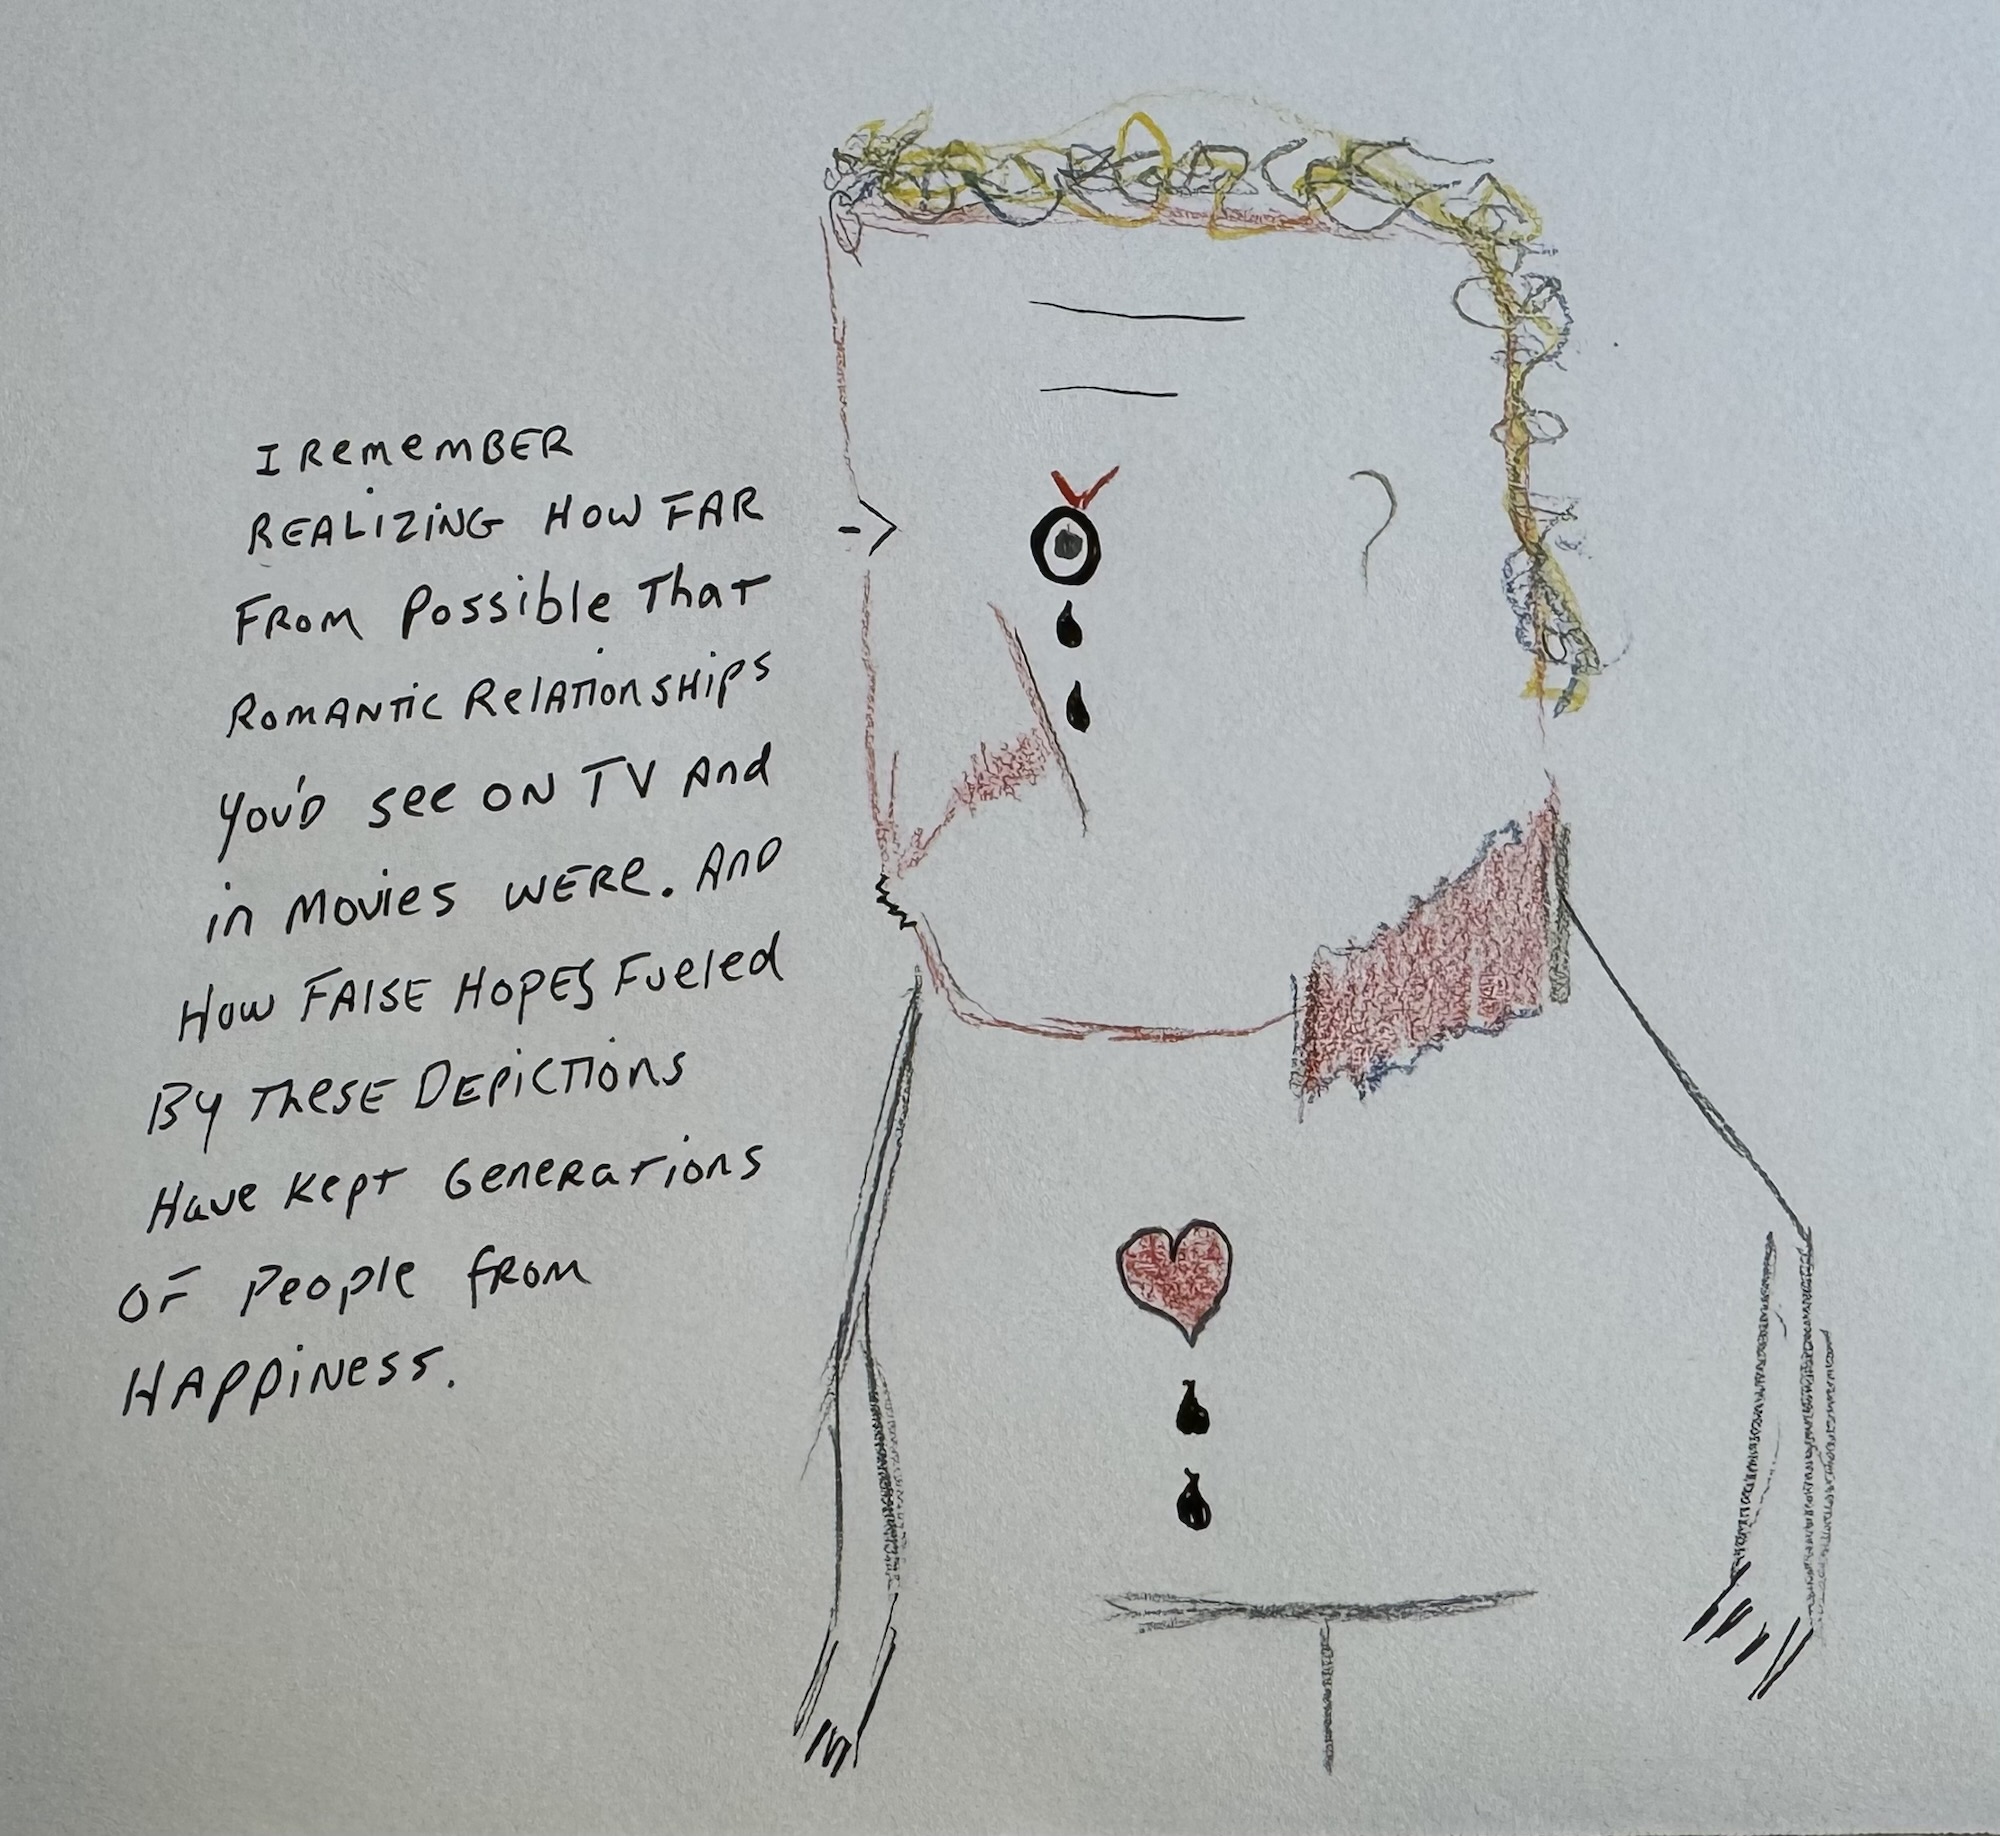 I RemembER
REALIZING HOW FAR
FROM Possible That
ROMANTIC RelATIonSHips
YOU'D see ON TV And
in Movies WERe. AnD
How FAlSE HOPES Fueled
By TheSE DEPICTIons
Have Kept GeneRaTions
OF People from
HAPPINess.